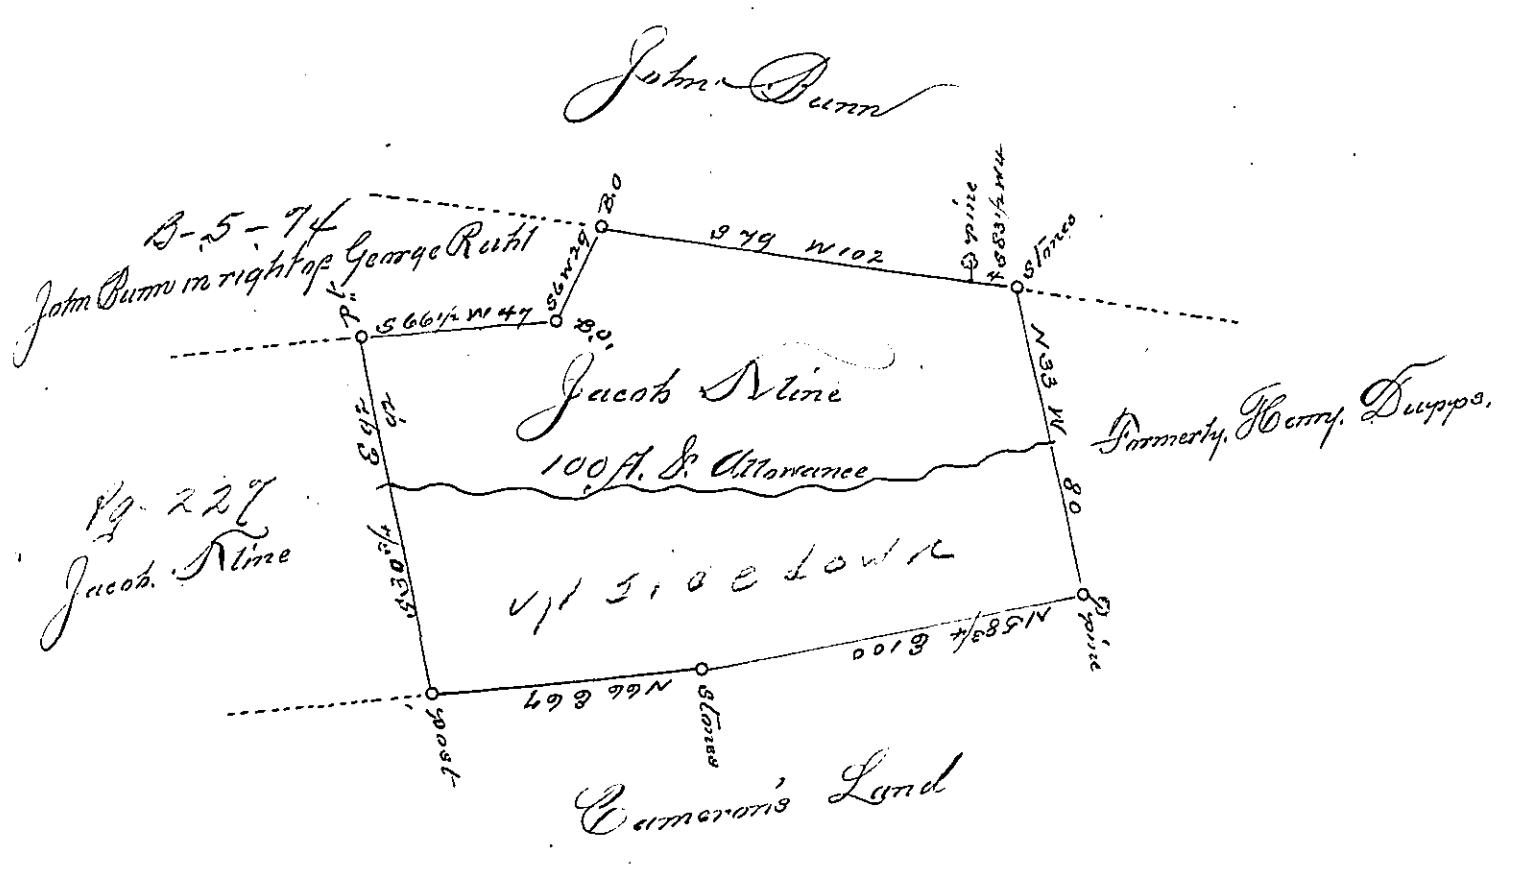 John Bunn
B-5-74
John Bunn in right of George Ruhl
B.O
S 79 W 102
Pine
S 83 1/2 W 4
Stones
S 6 W 29
"P"
S 66 1/2 W 47
B.O.
Jacob Kline
100 A. & Allowance
N 33 W 80
Formerly Henry Dupps.
Pg. 227
Jacob Kline
upside down
Pine
N 58 3/4 E 100
N 66 E 67
Stones
Post
Cameron's Land